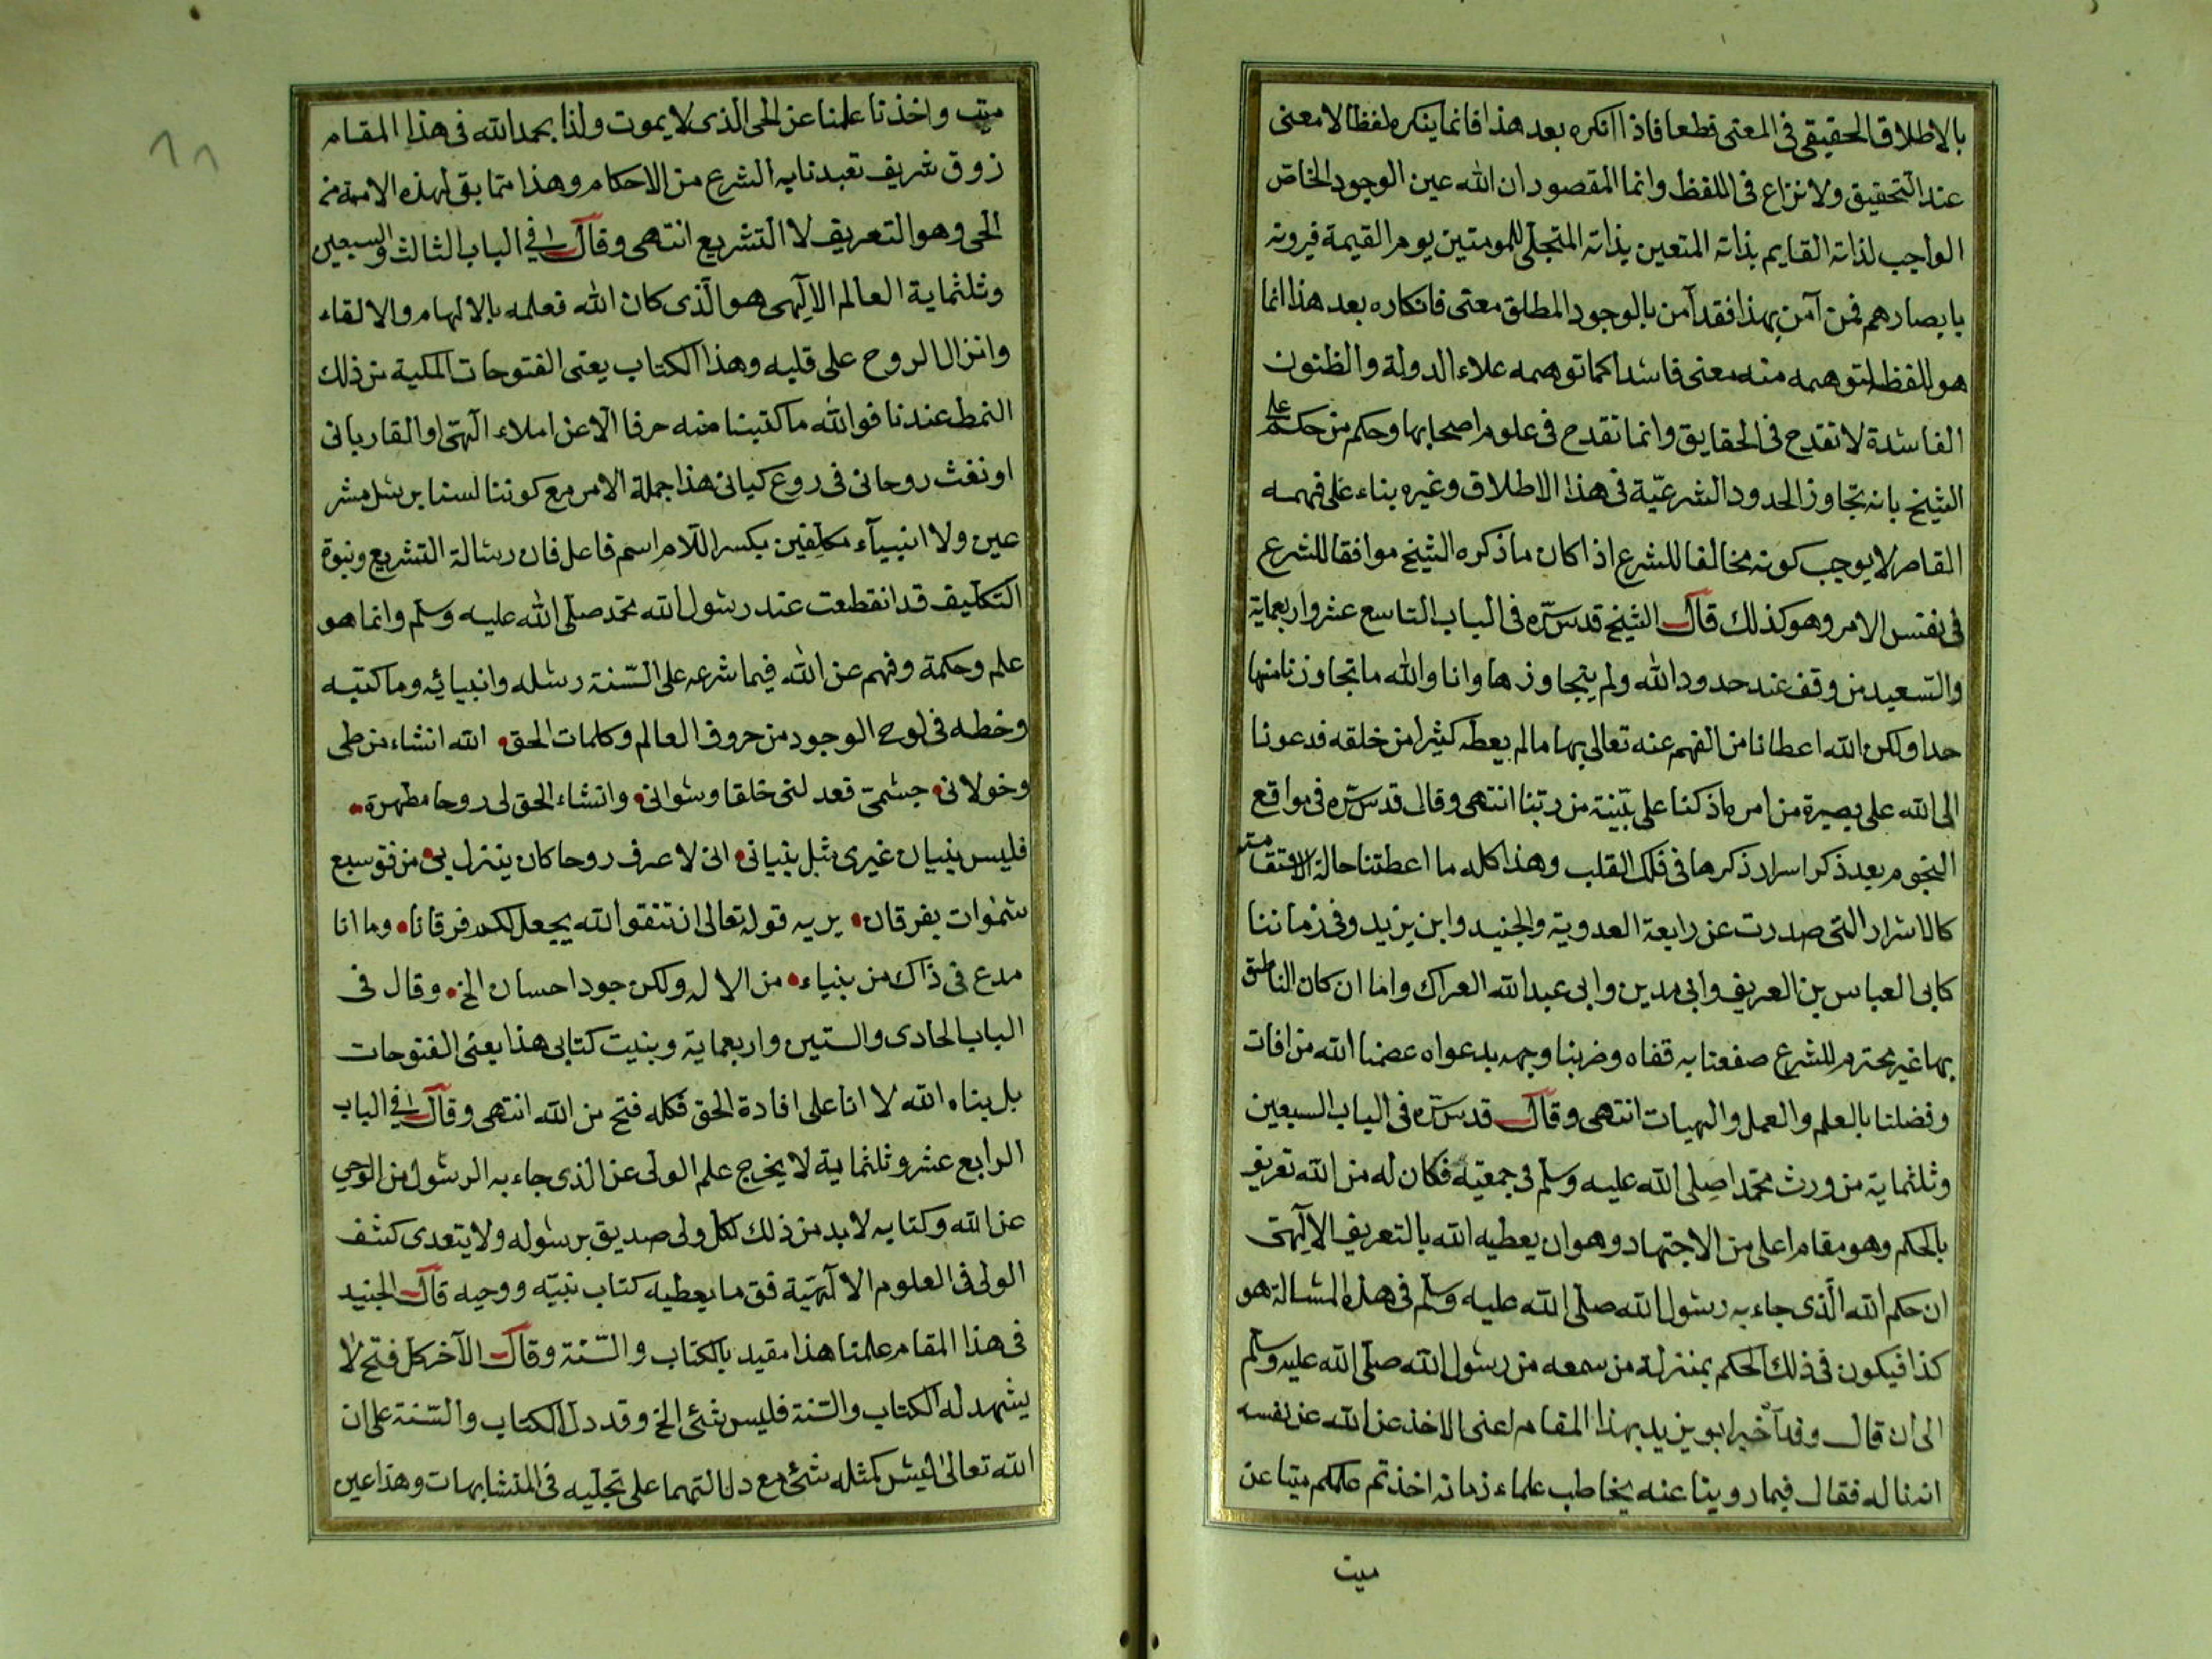 بالاطلاق الحقيقي في المعنى قطعا فاذا انكره بعد هذا فانما ينكره لفظا لا معنى
عند التحقيق ولا نزاع في اللفظ وانما المقصود ان الله عين الوجود الخاص
الواجب لذاته القايم بذاته المتعين بذاته المتجلي للمومنين يوم القيمة فيرونه
بابصارهم فمن آمن بهذا فقد آمن بالوجود المطلق معنى فانكاره بعد هذا انما
هو للفظ لتوهمه منه معنى فاسدا كما توهمه علاء الدولة والظنون
الفاسدة لا تقدح في الحقايق وانما تقدح في علوم اصحابها وحكم من حكم على
الشيخ بانه تجاوز الحدود الشرعيّة في هذا الاطلاق وغيره بناء على فهمه
القاصر لا يوجب كونه مخالفا للشرع اذا كان ما ذكره الشيخ موافقا للشرع
في نفس الامر وهو كذلك قال الشيخ قدس سرّه في الباب التاسع عشر واربعماية
والسعيد من وقف عند حدود الله ولم يتجاوزها وانا والله ما تجاوزنا منها
حدا ولكن الله اعطانا من الفهم عنه تعالى بها مالم يعطه كثيرا من خلقه فدعونا
الى الله على بصيرة من امره اذ كنا على بيّنة من ربنا انتهى وقال قدس سرّه في مواقع
النجوم بعد ذكر اسرار ذكرها في فلك القلب وهذا كله ما اعطتنا حالة الاستقامة
كالاسرار التي صدرت عن رابعة العدوية والجنيد وابن يزيد وفي زماننا
كابي العباس بن العريف وابي مدين وابي عبد الله العراك واما ان كان الناطق
بها غير محترم للشرع صفعنا به قفاه وضربنا وجهه بدعواه عصمنا الله من افات
وفضلنا بالعلم والعمل والهبات انتهى وقال قدس سرّه في الباب السبعين
وثلثماية من ورث محمّدا صلى الله عليه وسلم في جمعيته فكان له من الله تعريف
بالحكم وهو مقام اعلى من الاجتهاد وهو ان يعطيه الله بالتعريف الالٓهي
ان حكم الله الّذي جاء به رسول الله صلى الله عليه وسلم في هذه المسالة هو
كذا فيكون في ذلك الحكم بمنزلة من سمعه من رسول الله صلى الله عليه وسلم
الى ان قال وقد آخبر ابو يزيد بهذا المقام اعني الاخذ عن الله عن نفسه
انه ناله فقال فيما روينا عنه يخاطب علماء زمانه اخذتم علمكم ميتا عن
ميت
ميت واخذنا علمنا عن الحي الذي لا يموت ولنا بحمد الله في هذا المقام
زوق شريف تعبدنا به الشرع من الاحكام وهذا مما بقي لهذه الامة من
الحي وهو التعريف لا التشريع انتهى وقال في الباب الثالث والسبعين
وثلثماية العالم الالٓهي هو الّذي كان الله فعلمه بالالهام والالقاء
وانزال الروح على قلبه وهذا الكتاب يعني الفتوحات المكية من ذلك
النمط عندنا فوالله ما كتبنا منه حرفا الّا عن املاء الٓهي او القاء رباني
او نفث روحاني في روع كياني هذا جملة الامر مع كوننا لسنا برسل مشر
عين ولا انبيآء مكلفين بكسر اللام اسم فاعل فان رسالة التشريع ونبوة
التكليف قد انقطعت عند رسول الله محمد صلى الله عليه وسلم وانما هو
علم وحكمة وفهم عن الله فيما شرعه على السّنة رسله وانبيائه وما كتبه
وخطه في لوح الوجود من حروف العالم وكلمات الحق الله انشاء من طي
وخولاني جسمي فعد لني خلقا وسواني وانشاء الحق لى روحا مطهرة
فليس بنيان غيري مثل بنياني اني لا عرف روحا كان ينزل بي من فوق سبع
سموات بفرقان يريد قوله تعالى ان تتقوا الله يجعل لكم فرقانا وما انا
مدع في ذاك من بنياء من الاله ولكن جود احسان الخ وقال في
الباب الحادي والستين واربعماية وبنيت كتابي هذا يعني الفتوحات
بل بناه الله لا انا على افادة الحق فكله فتح من الله انتهى وقال في الباب
الرابع عشر وثلثماية لا يخرج علم الولى عن الذي جاء به الرسول من الوحي
عن الله وكتابه لا بد من ذلك لكل ولى صديق برسوله ولا يتعدى كشف
الولى في العلوم الالٓهيّة فوق ما يعطيه كتاب نبيّه ووحيه قال الجنيد
في هذا المقام علمنا هذا مقيد بالكتاب والسّنة وقال الآخر كل فتح لا
يشهد له الكتاب والسّنة فليس بشئ الخ وقد دل الكتاب والسّنة على ان
الله تعالى ليس كمثله شئ مع دلالتهما على تجلّيه في المتشابهات وهذا عين